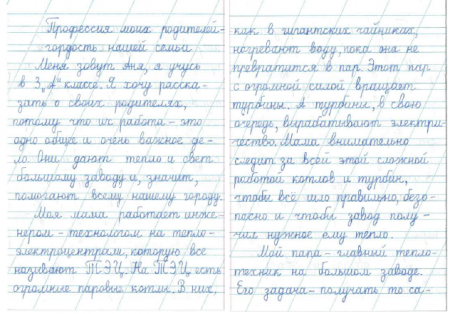 Профессия моих родителей-
гордость нашей семьи
Меня зовут Аня, я учусь
в 3 „А" классе. Я хочу расска-
зать о своих родителях,
потому что их работа - это
одно общее и очень важное де-
ло. Они дают тепло и свет
большому заводу и, значит,
помогают всему нашему городу.
Моя мама работает инже-
нером - технологом на тепло-
электроцентрали, которую все
называют ТЭЦ. На ТЭЦ есть
огромные паровые котлы. В них,
как в гигантских чайниках,
нагревают воду, пока она не
превратится в пар. Этот пар
с огромной силой вращает
турбины. А турбины, в свою
очередь, вырабатывают электри-
чество. Мама внимательно
следит за всей этой сложной
работой котлов и турбин,
чтобы всё шло правильно, безо-
пасно и чтобы завод полу-
чал нужное ему тепло.
Мой папа - главный тепло-
техник на большом заводе.
Его задача - получать то са-